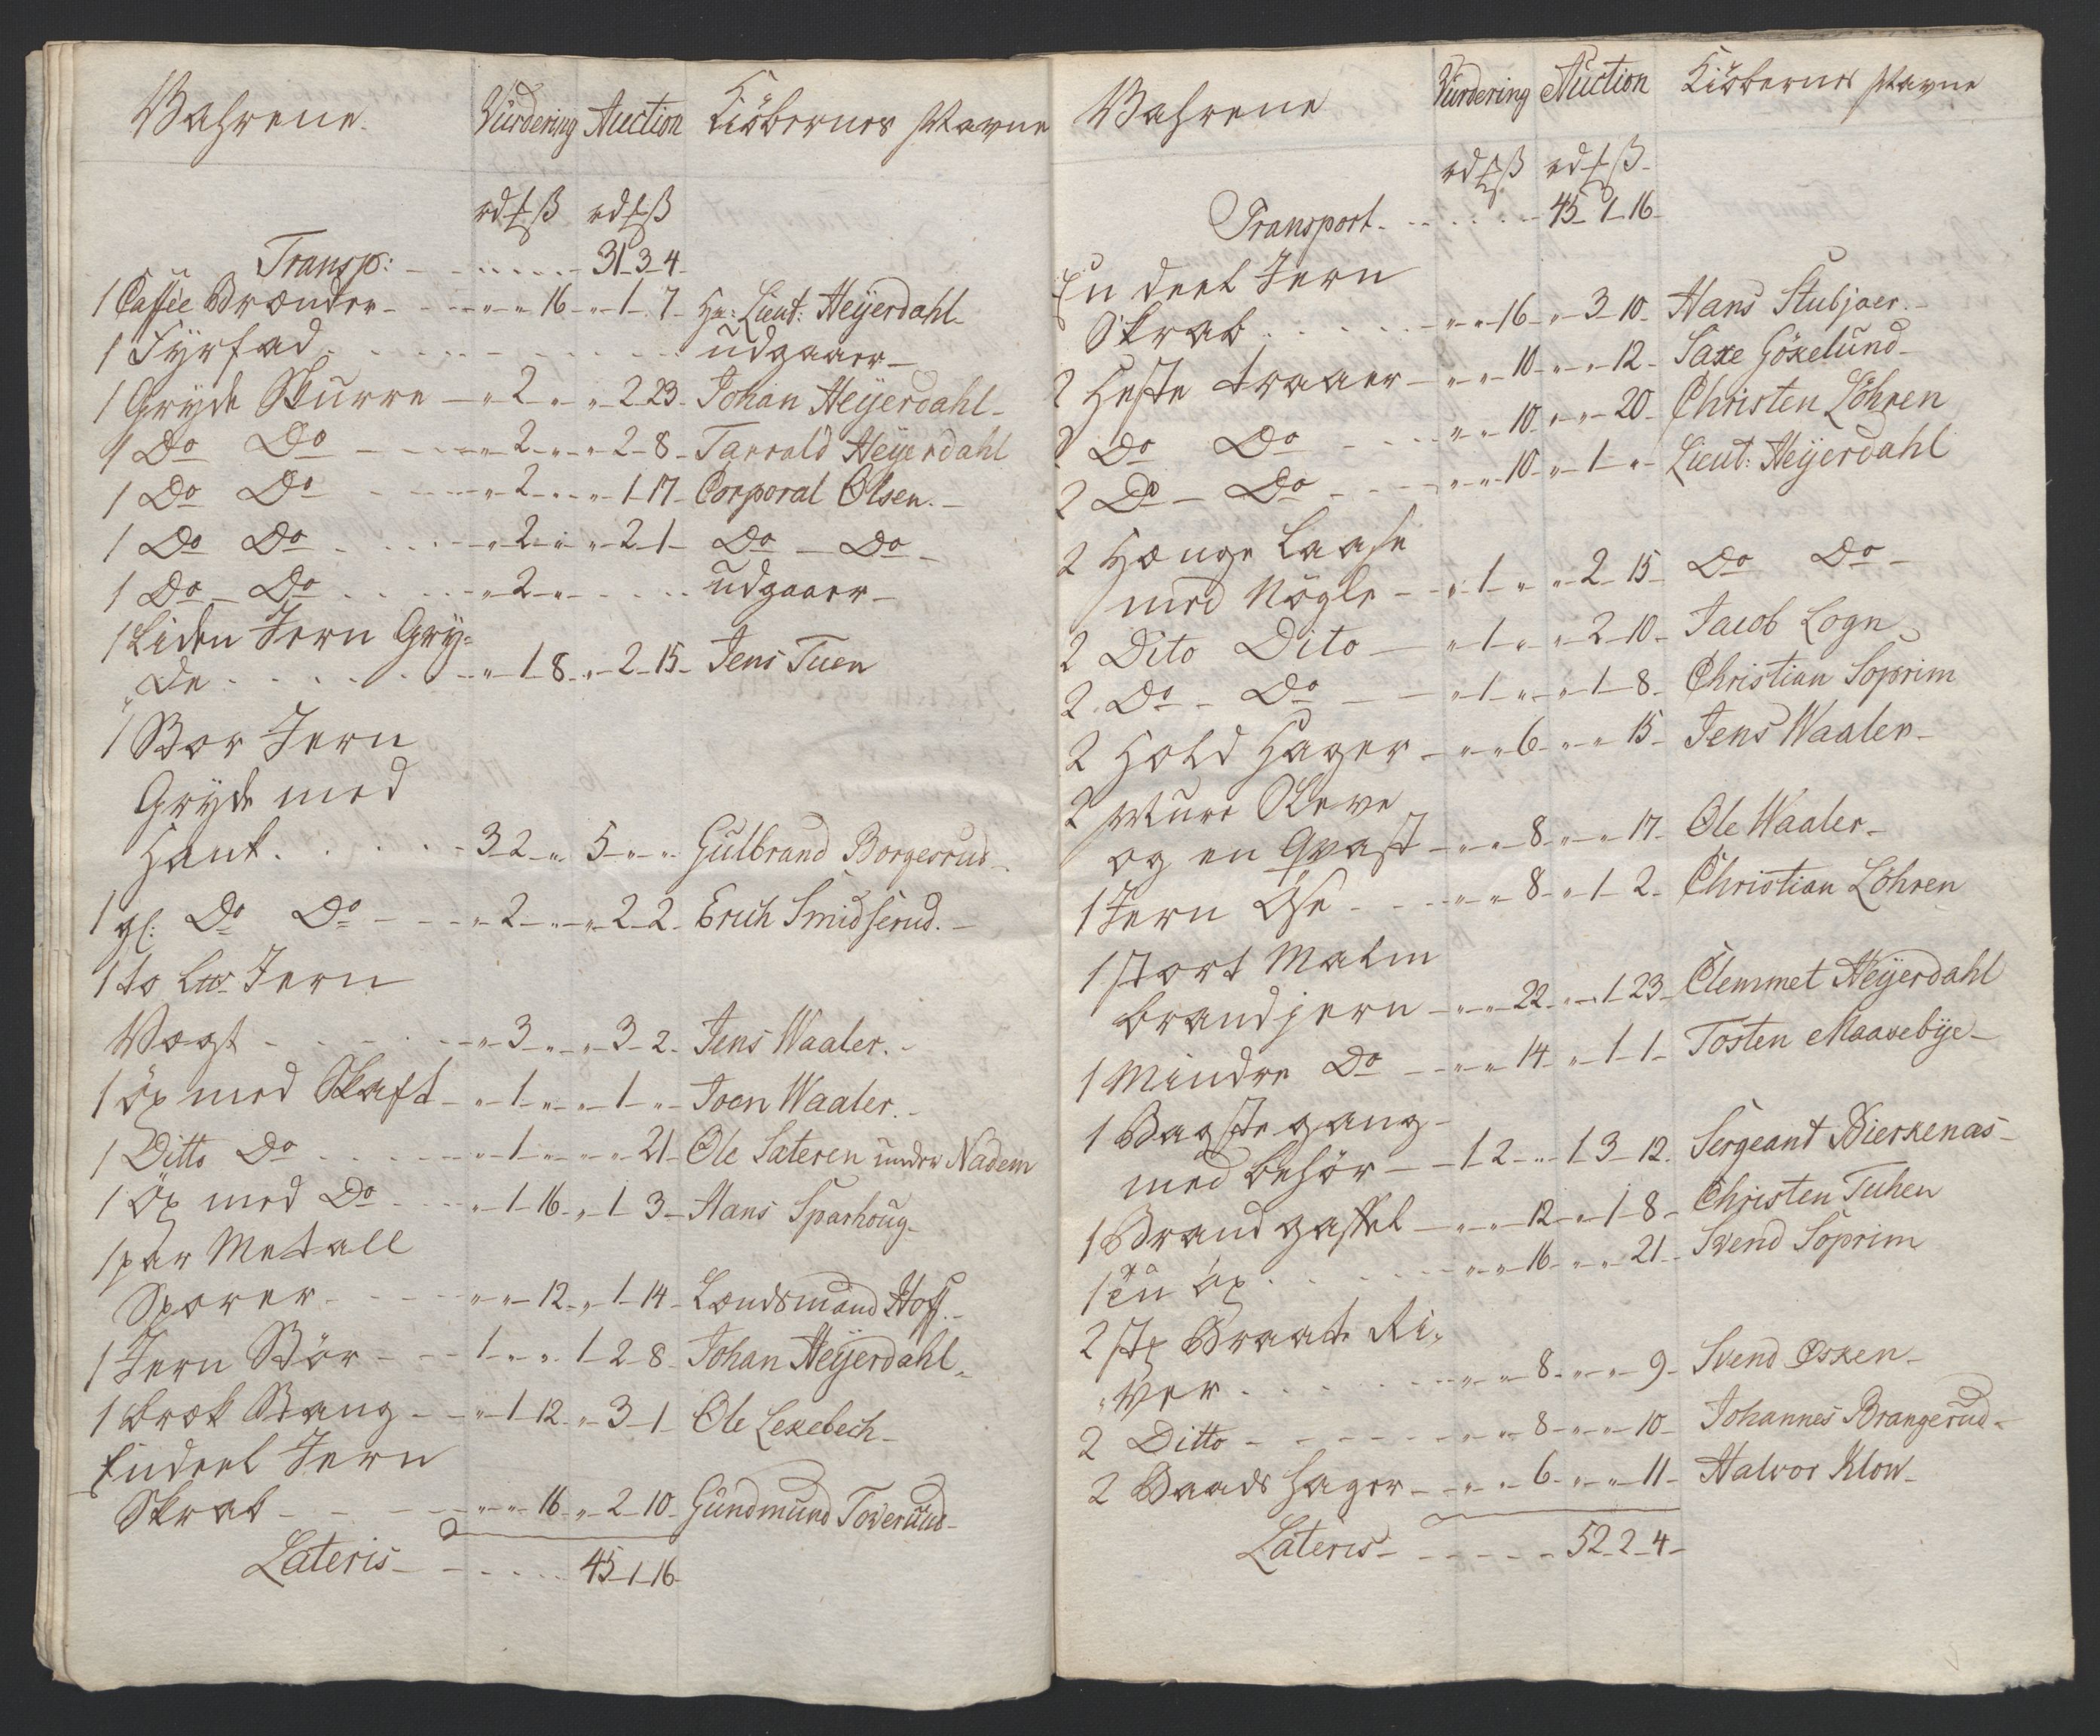 Vahrene. Vurdering Auction Kiöbernes Navne
rd ƒ ß rd ƒ ß
Transp: - - 31-3-4-
1 Caffée Brænder - - „ „ 16 „ 1 7 Hr: Lieut: Heÿerdahl-
1 Fyrfad - - udgaaer-
1 Gryde Skurre - „ 2 „ „ 2 23 Johan Heÿerdahl-
1 Do Do - - „ 2 „ „ 2 8 Tarrald Heÿerdahl
1 Do Do - - „ 2 „ „ 1 17 Corporal Olsen.-
1 Do Do - - „ 2 „ „ 2 1 Do - Do -
1 Do - Do - - „ 2 „ - - udgaaer-
1 Liden Jern Gry-
de - - „ 1 8 „ 2 15 Jens Tuen
1 Stor Jern
Gryde med
Hank. - - 3 2 „ 5 „ „ Gulbrand Borgesrud-
1 gl: Do Do - - „ 2 „ „ 2 2 Erich Smidserud.-
1 to Jern
Vægt - - „ 3 „ „ 3 2 Jens Waaler.-
1 Öx med Skaft - „ 1 „ „ 1 „ Joen Waaler.-
1 Ditto Do - - „ 1 „ „ „ 21 Ole Sateren under Nadem
1 Öx med Do - - „ 1 16 „ 1 3 Hans Sparhoug-
1 par Metall
Sporer - - „ „ 12 „ 1 14 Lændsmand Hoff.-
1 Jern Stör - - 1 „ „ 1 2 8 Johan Heÿerdahl-
1 bræk Stang - - „ 1 12 „ 3 1 Ole Lekebech-
Endeel Jern
Skrab - - „ „ 16 „ 2 10 Gundmund Toverud-
Lateris - - 45-1-16-
Vahrene Vurdering Auction Kiöbernes Navne
rd ƒ ß rd ƒ ß
Transport. - - 45 1 16
En deel Jern
Skrab - - „ „ 16 „ 3 10 Hans Stubjaer.-
2 Heste traaer - „ „ 10 „ „ 12 Saxe Göxelund-
2 Do Do - - „ „ 10 „ „ 20 Christen Löhren
2 Do - Do - - „ „ 10 „ 1 „ Lieut: Heÿerdahl
2 Hænge Laase
med Nögle - - „ 1 „ „ 2 15 Do Do -
2 Dito Dito - „ 1 „ „ 2 10 Jacob Logn
2 Do - Do - „ 1 „ „ 1 8 Christian Soprim
2 Hold Hager - „ „ 6 „ „ 15 Jens Waaler-
2 Muur Skeve
og en Qvast - „ „ 8 „ „ 17 Ole Waaler-
1 Jern Öse - - „ „ 8 „ 1 2 Christian Löhren
1 stort Malm
brandjern - „ „ 22 „ 1 23 Clemmet Heÿerdahl
1 Mindre Do - - „ „ 14 „ 1 1 Tosten Maasebÿe-
1 Bagste gang-
med behör - - 1 2 „ 1 3 12 Sergeant Bierkenas-
1 Brand gaffel - „ „ 12 „ 1 8 Christen Tuhen
1 en Öx. - - „ „ 16 „ „ 21 Svend Soprim
2 stk Braate Ri-
ver - - „ „ 8 „ „ 9 Svend Osken-
2 Ditto - - „ „ 8 „ „ 10 Johannes Brangerud-
2 Baads hager - „ „ 6 „ „ 11 Halvor Klow-
Lateris - - 52-2-4-